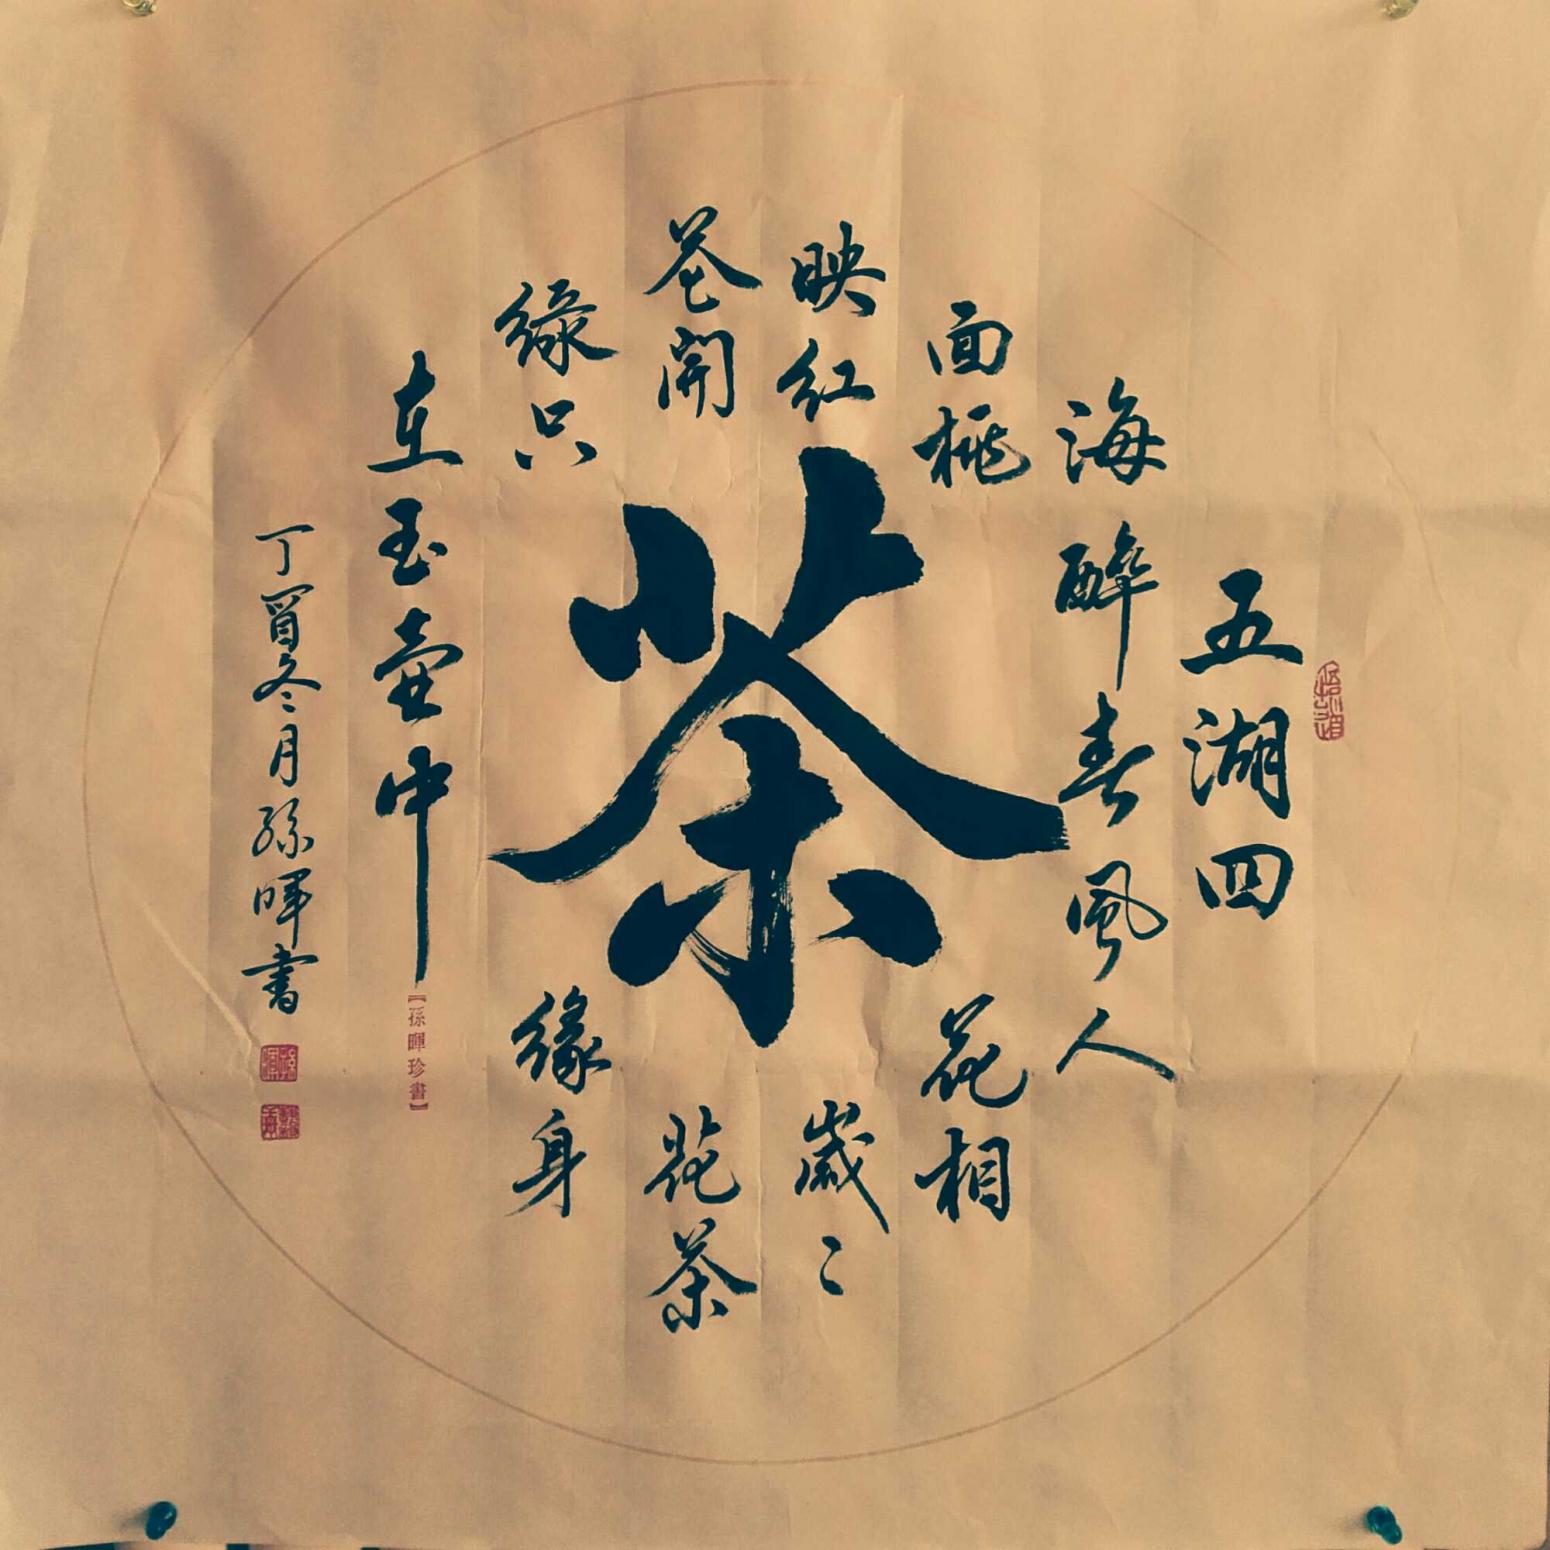 五湖四
海醉春風人
面桃花相
映紅歲々
花開花茶
緣只緣身
在玉壺中
茶
丁酉冬月孫暉書
【孫暉珍書】